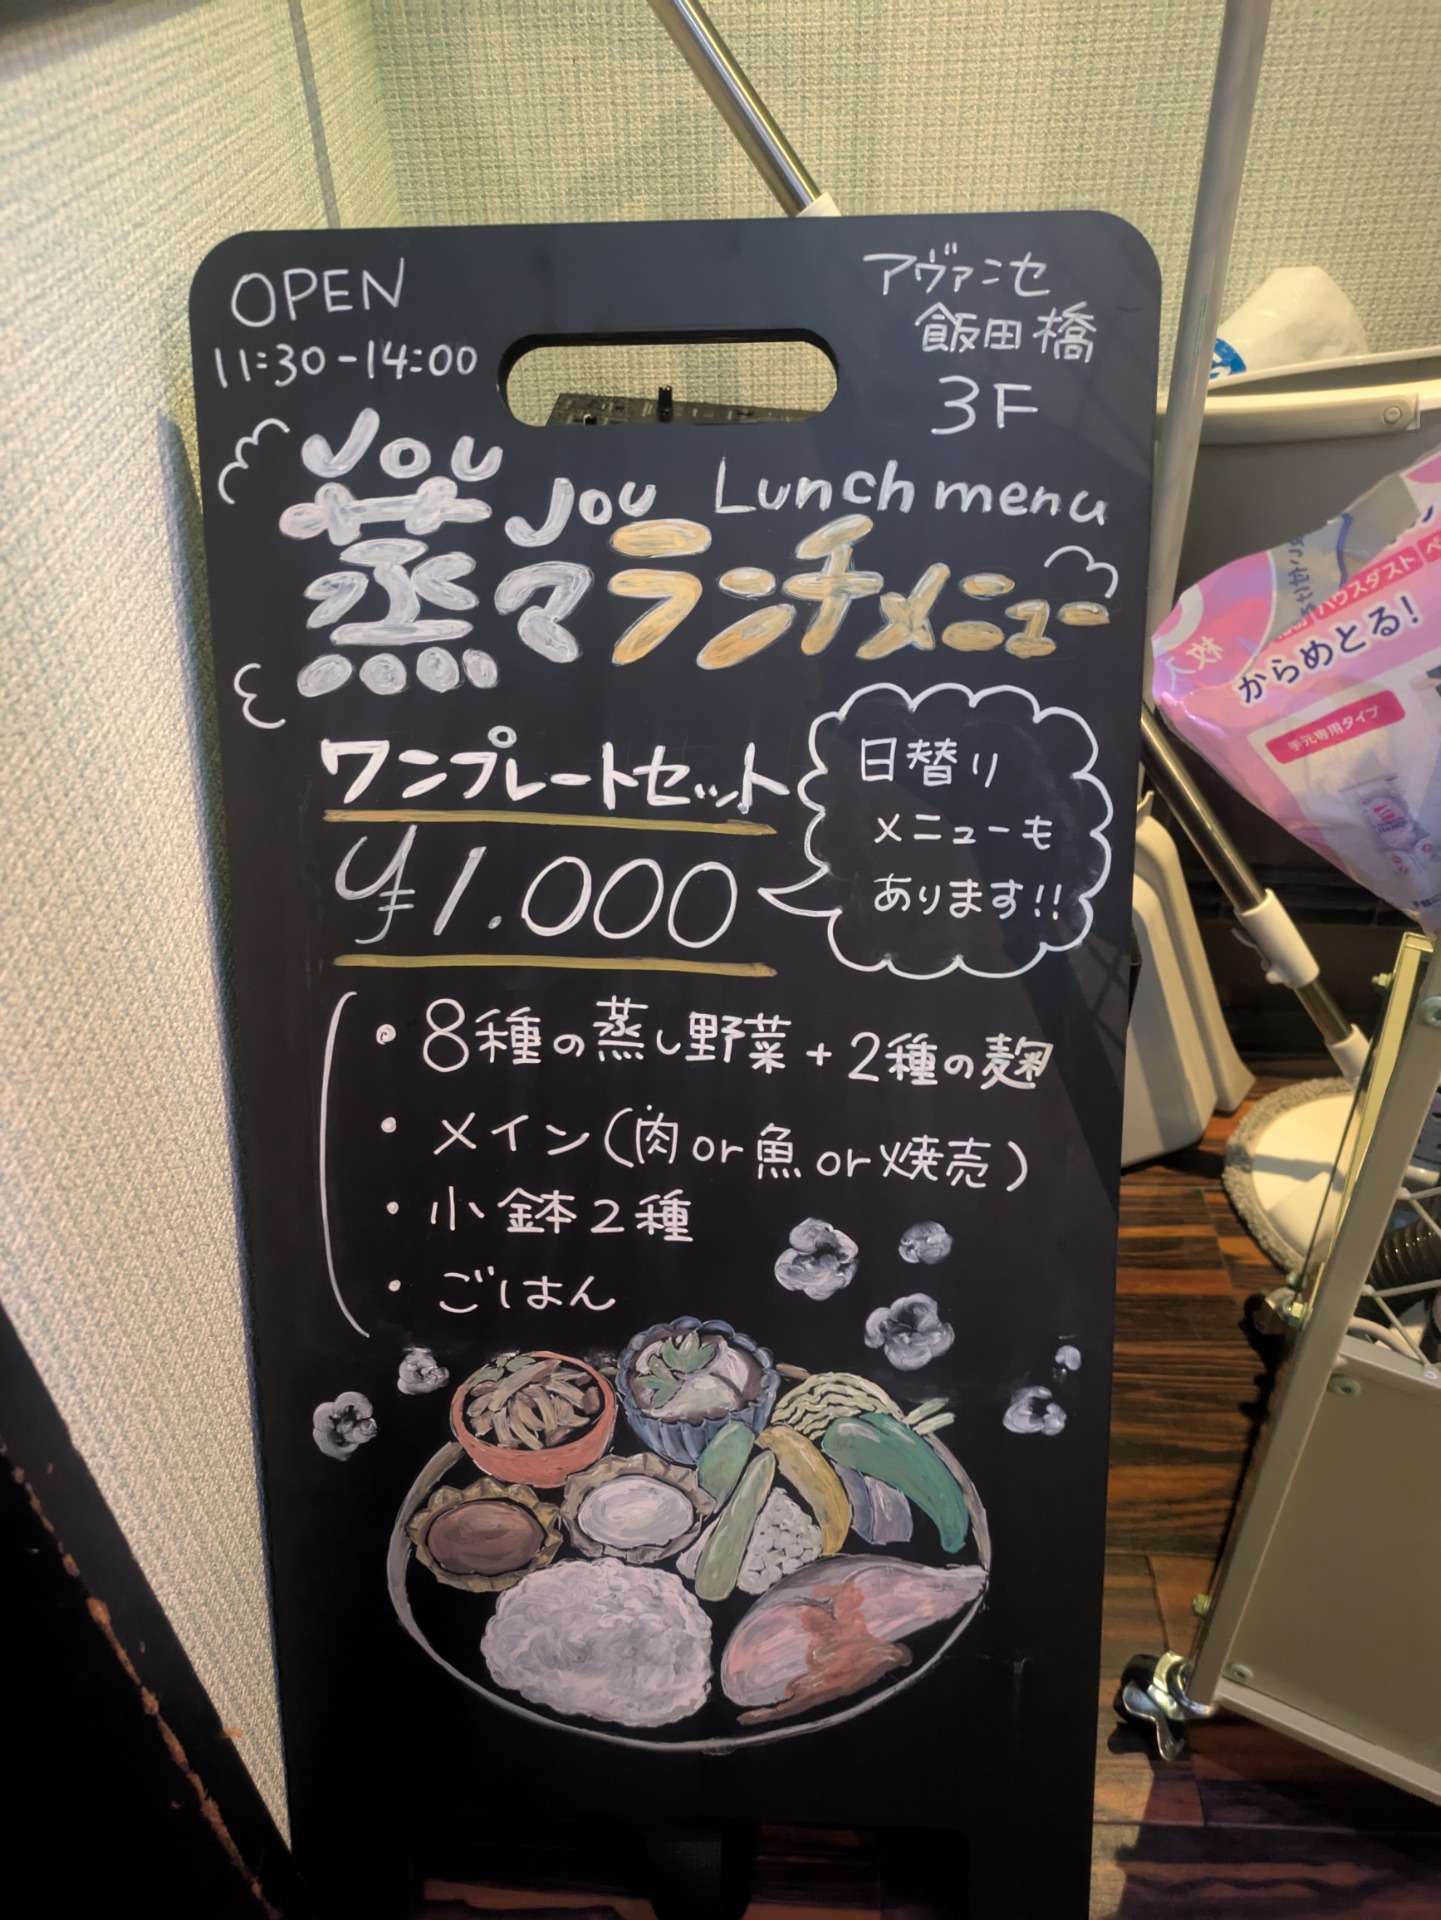 OPEN
11:30-14:00
アヴァンセ
飯田橋
3F
Jou Jou Lunch menu
蒸々ランチメニュー
ワンプレートセット
¥1.000
日替り
メニューも
あります!!
・8種の蒸し野菜+2種の麹
・メイン(肉or魚or焼売)
・小鉢2種
・ごはん
ハウスダスト
からめとる!
手元専用タイプ